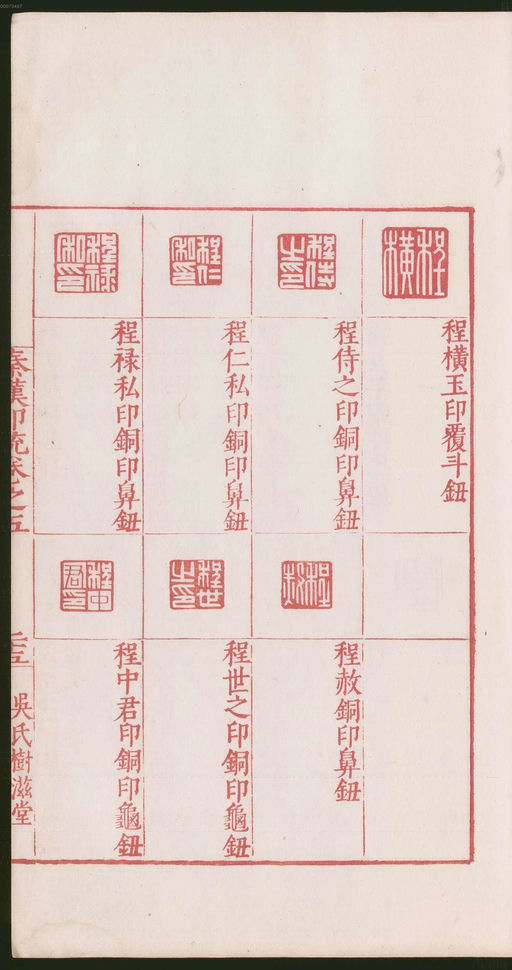 程橫
程橫玉印覆斗鈕
程侍之印
程侍之印銅印鼻鈕
程仁私印
程仁私印銅印鼻鈕
程祿私印
程禄私印銅印鼻鈕
程赦
程赦銅印鼻鈕
程世之印
程世之印銅印龜鈕
程中君印
程中君印銅印龜鈕
秦漢印統卷之五
二十五
吳氏樹滋堂
00073487